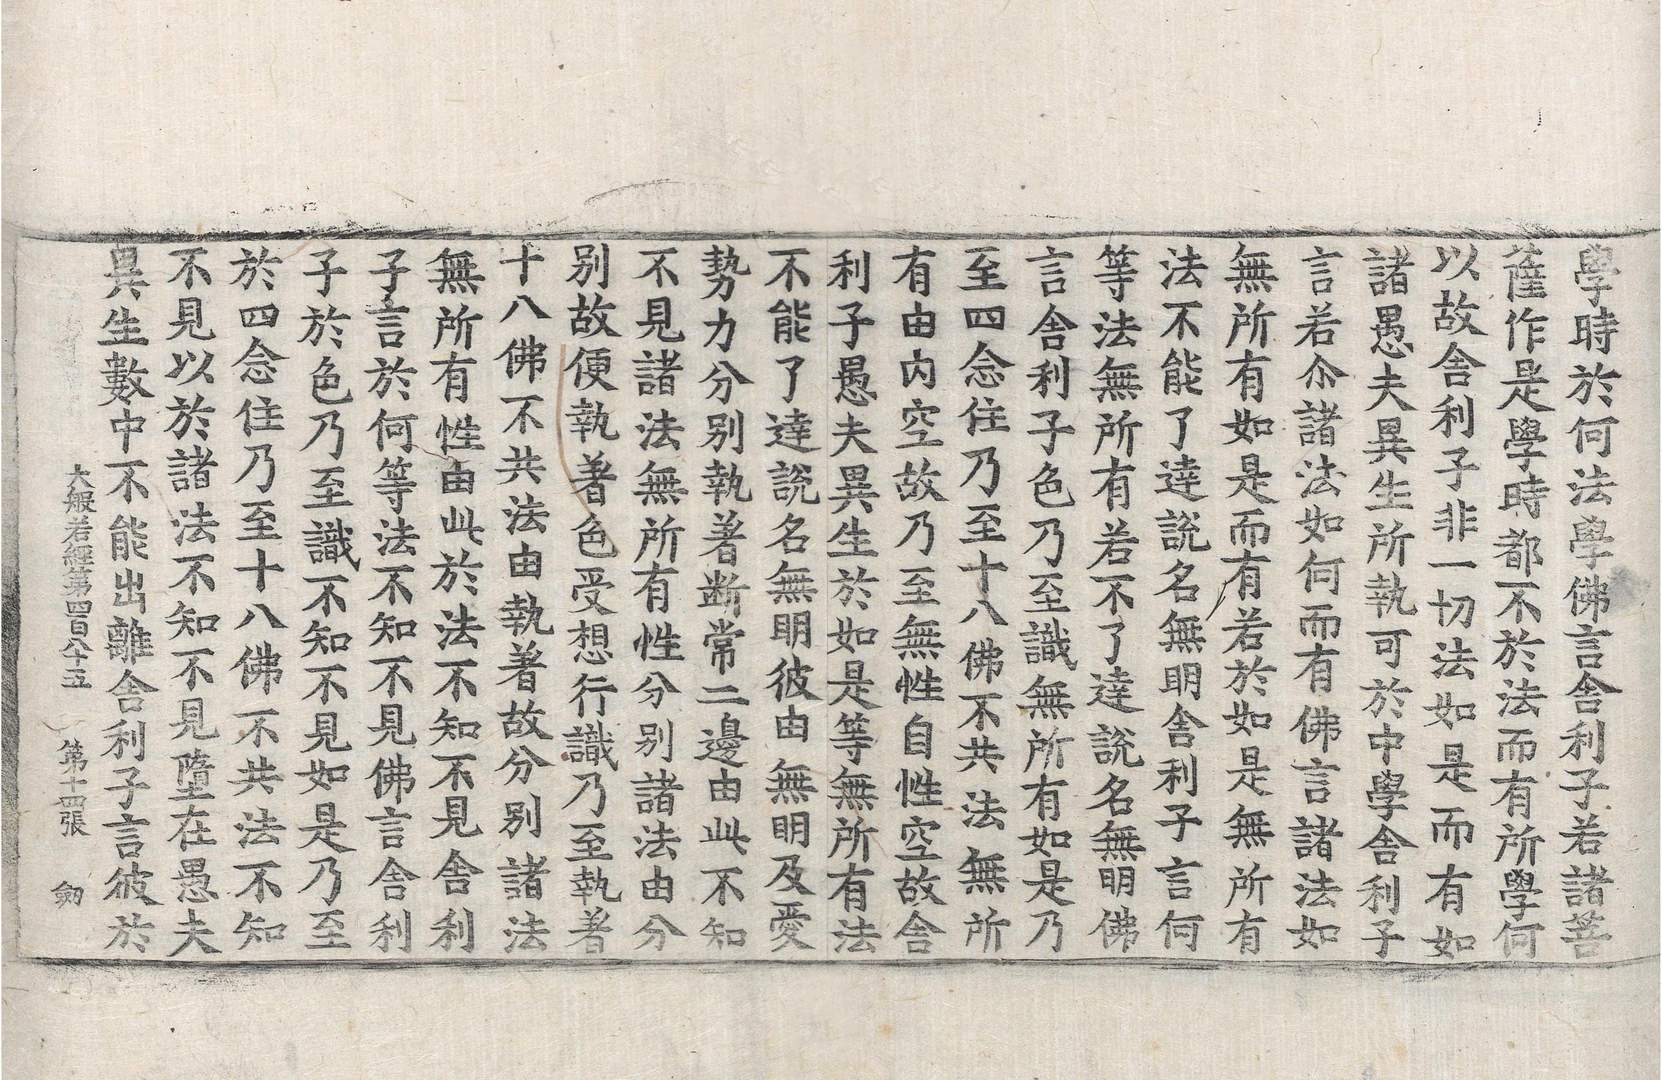 學時於何法學佛言舍利子若諸菩
薩作是學時都不於法而有所學何
以故舍利子非一切法如是而有如
諸愚夫異生所執可於中學舍利子
言若尒諸法如何而有佛言諸法如
無所有如是而有若於如是無所有
法不能了達說名無明舍利子言何
等法無所有若不了達說名無明佛
言舍利子色乃至識無所有如是乃
至四念住乃至十八佛不共法無所
有由內空故乃至無性自性空故舍
利子愚夫異生於如是等無所有法
不能了達說名無明彼由無明及愛
勢力分別執著斷常二邊由此不知
不見諸法無所有性分別諸法由分
別故便執著色受想行識乃至執著
十八佛不共法由執著故分別諸法
無所有性由此於法不知不見舍利
子言於何等法不知不見佛言舍利
子於色乃至識不知不見如是乃至
於四念住乃至十八佛不共法不知
不見以於諸法不知不見墮在愚夫
異生數中不能出離舍利子言彼於
大般若經第四百八十五 第十四張 劒